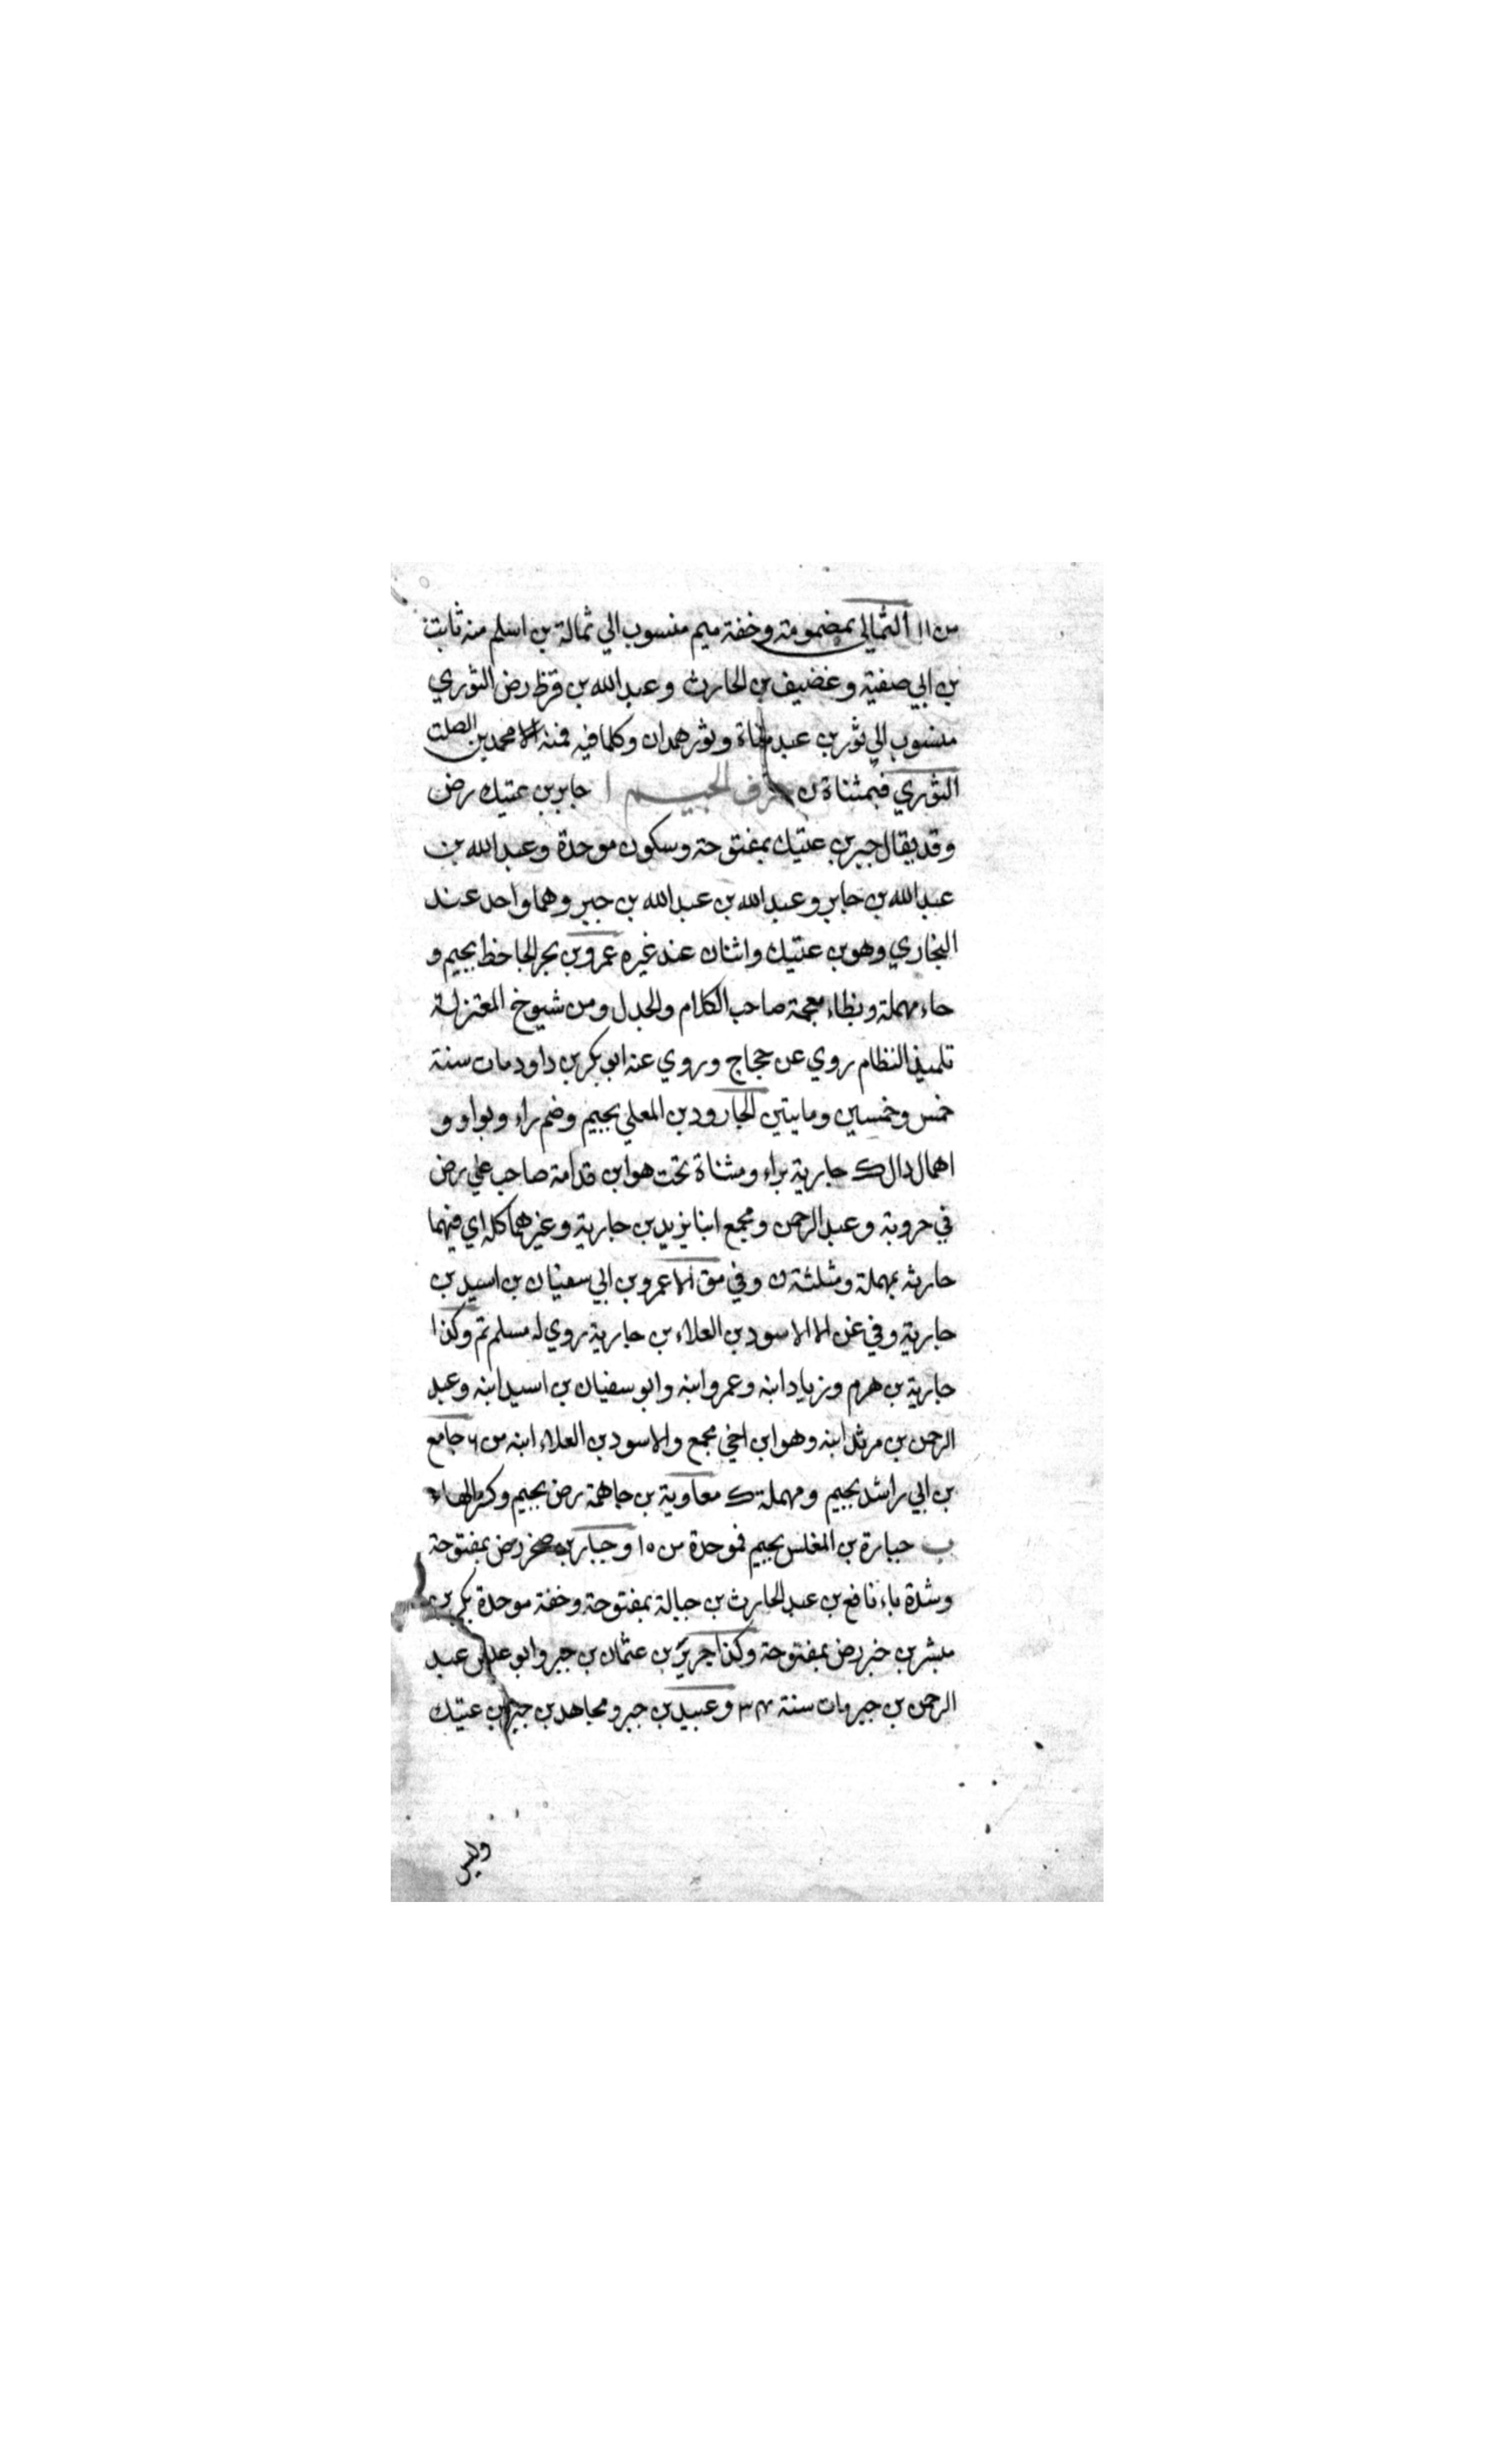 من ١١ الثمالي بمضمومة وخفة ميم منسوب الي ثمالة بن اسلم منه ثابت
بن ابي صفية وغضيف بن الحارث وعبد الله بن قرظ رض الثوري
منسوب الي ثور بن عبد مناة وثور همدان وكلما فيه فمنه الا محمد بن الصلت
التوري فبمثناة ن حرف الجيم ا جابر بن عتيك رض
وقد يقال جبر بن عتيك بمفتوحة وسكون موحدة وعبد الله بن
عبد الله بن جابر وعبد الله بن عبد الله بن جبر وهما واحد عند
البخاري وهو بن عتيك واثنان عند غيره عمرو بن بحر الجاحظ بجيم و
حاء مهملة وبظاء معجمة صاحب الكلام والجدل ومن شيوخ المعتزلة
تلميذ النظام روي عن حجاج وروي عنه ابو بكر بن داود مات سنة
خمس وخمسين ومايتين الجارود بن المعلي بجيم وضم راء وبواو و
اهمال دال ك جارية براء ومثناة تحت هو ابن قدامة صاحب علي رض
في حروبة وعبد الرحمن ومجمع ابنا يزيد بن جارية وغيرهما كله اي فيهما
حارثه بمهملة ومثلثة ن وفي مق الا عمرو بن ابي سفيان بن اسيد بن
جارية وفي غن الا الاسود بن العلاء بن جارية روي له مسلم تم وكذا
جارية بن هرم وزياد ابنه وعمرو ابنه وابو سفيان بن اسيد ابنه وعبد
الرحمن بن مرثد ابنه وهو ابن اخي مجمع والاسود بن العلاء ابنه من ٦ جامع
بن ابي راشد بجيم ومهملة ك معاوية بن جاهمة رض بجيم وكسر الهاء
ب جبارة بن المغلس بجيم فموحدة من ١٠ وجبار بن صخر رض بمفتوحة
وشدة باء نافع بن عبد الحارث بن حبالة بمفتوحة وخفة موحدة بكر بن
مبشر بن خبر رض بمفتوحة وكذا جرير بن عثمان بن جبر وابو عبس عبد
الرحمن بن جبر مات سنة ٣٤ وعبيد بن جبر ومجاهد بن جبر بن عتيك
وليس